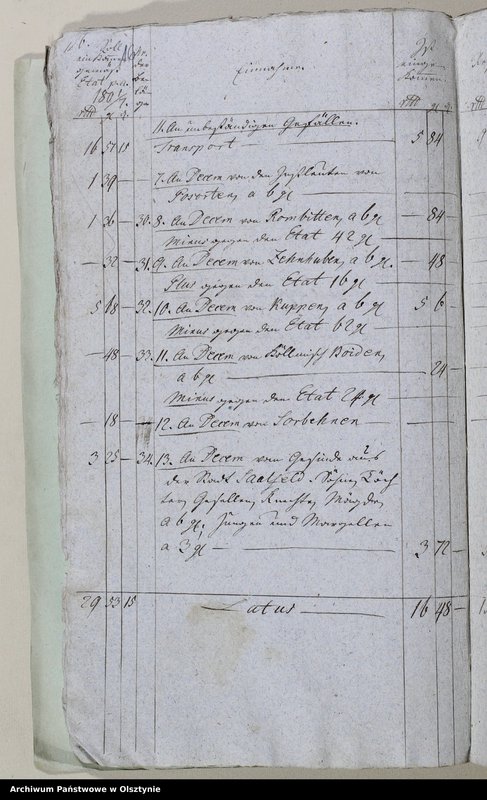 Soll
einkommen
gemäß
Etat pro
180 6/7.
Einnahme.
Ist
eingekommen.
rtl g d
rtl g d
II. An unbeständigen Gefällen.
16 51 15 Transport 5 84
1 39 — 7. An Decem von den Instleuten von
Posorten, a 6 gl
1 36 — 30. 8. An Decem von Rombitten, a 6 gl — 84 —
Minus gegen den Etat 42 gl
— 32 — 31. 9. An Decem von Zehnhuben, a 6 gl. — 48 —
Plus gegen den Etat 16 gl
5 68 — 32. 10. An Decem von Kuppen, a 6 gl 5 6 —
Minus gegen den Etat 62 gl
— 48 — 33. 11. An Decem von Böllnisch Boiden,
a 6 gl — 24 —
Minus gegen den Etat 24 gl
— 18 — 12. An Decem von Sorbehnen
3 25 — 34. 13. An Decem vom Gesinde aus
der Stadt Saalfeld. Söhne, Töch
ter, Gesellen, Knechte, Mägde,
a 6 gl, Jungen und Margellen
a 3 gl — 3 72 —
29 53 15 Latus 16 48 —
Archiwum Państwowe w Olsztynie